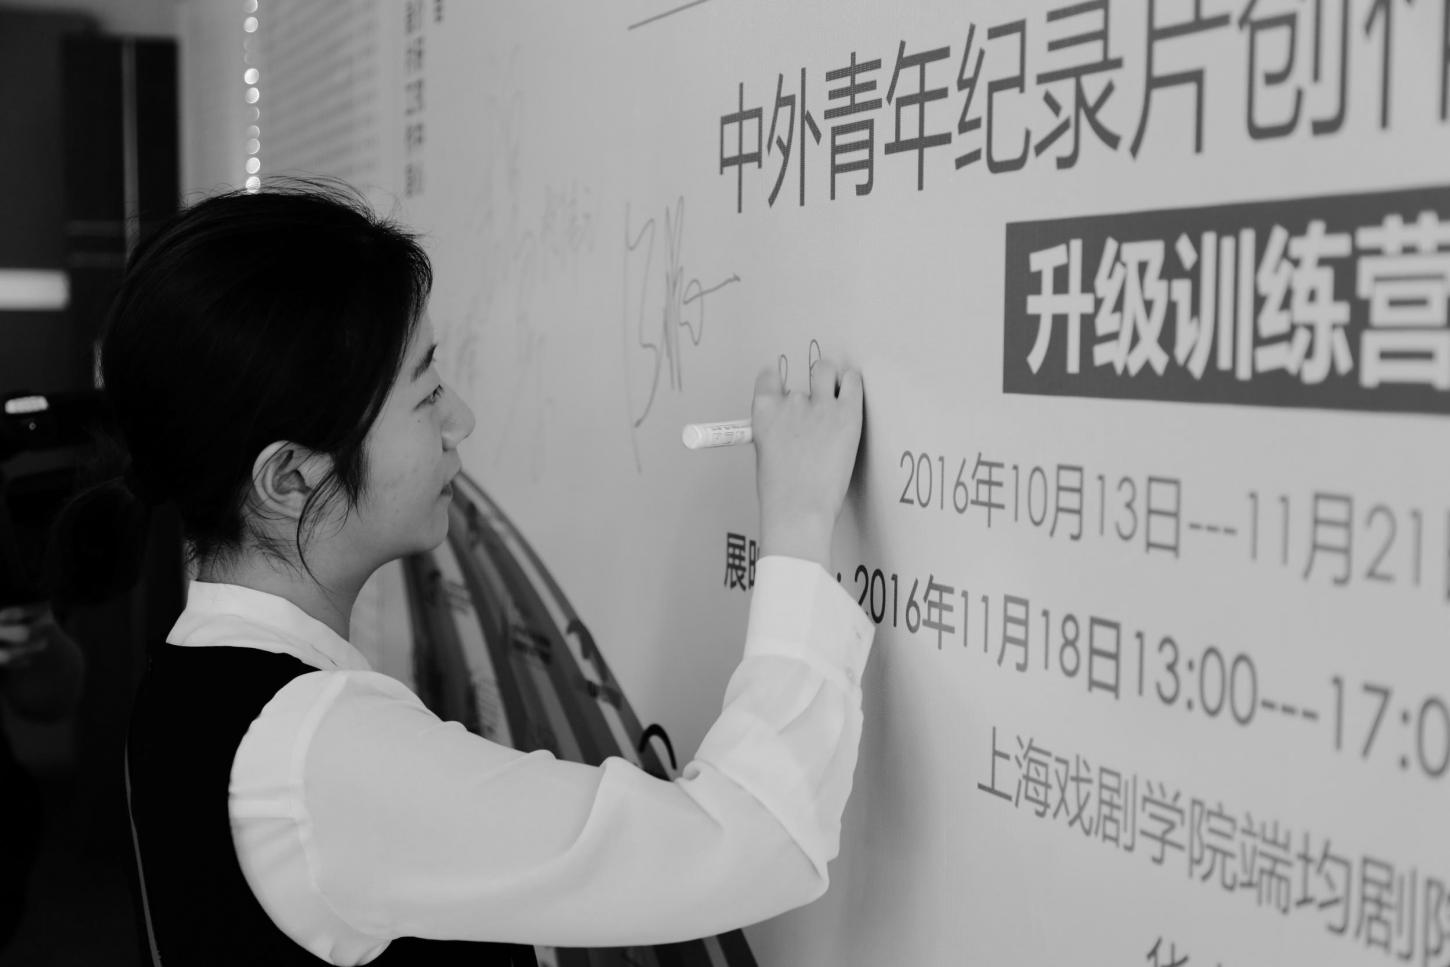 中外青年纪录片创作
升级训练营
2016年10月13日---11月21
展时 : 2016年11月18日13:00---17:0
上海戏剧学院端均剧院